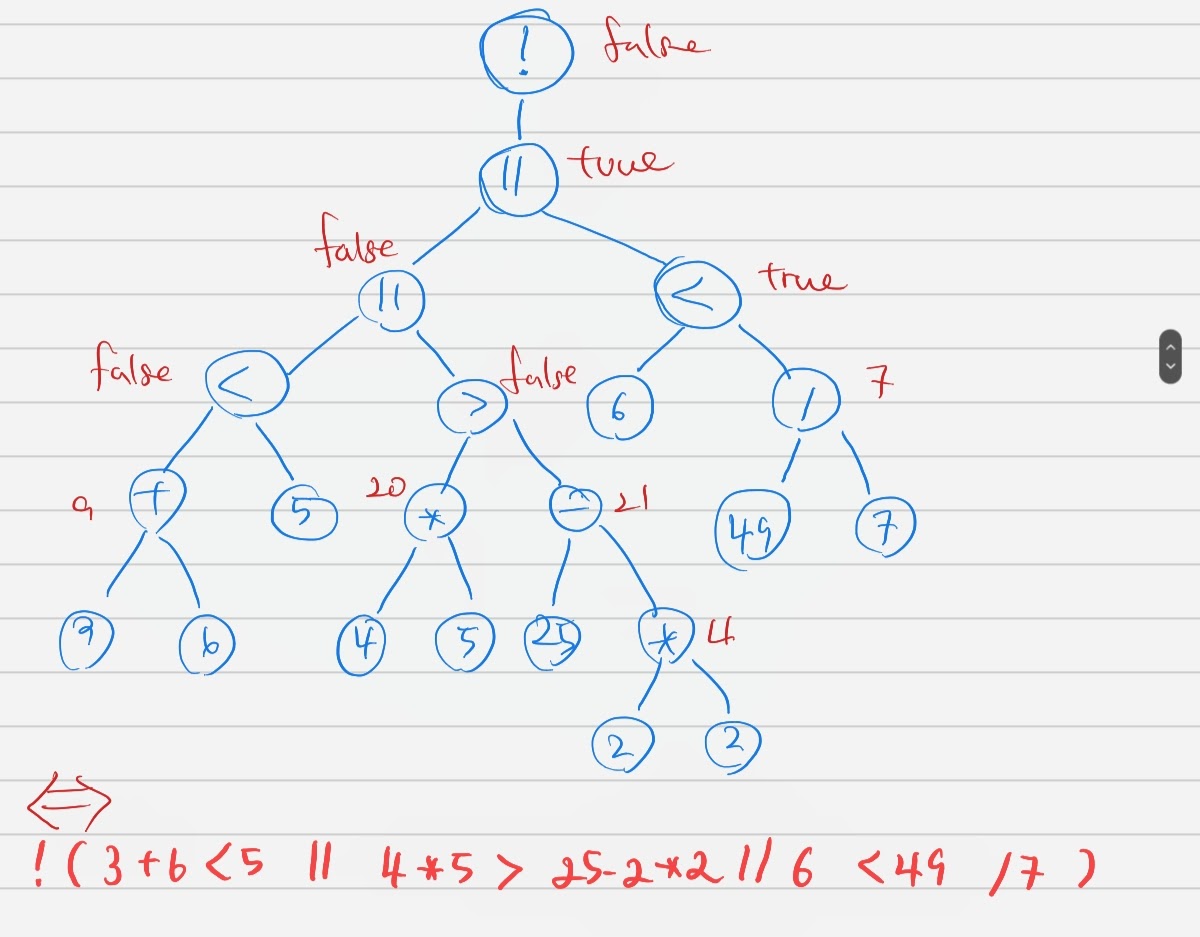 ! false
|| true
false
|| < true
false < > false 6 / 7
9 + 5 20 * - 21 49 7
3 6 4 5 25 * 4
2 2
⇔
! ( 3 + 6 < 5 || 4 * 5 > 25 - 2 * 2 || 6 < 49 / 7 )